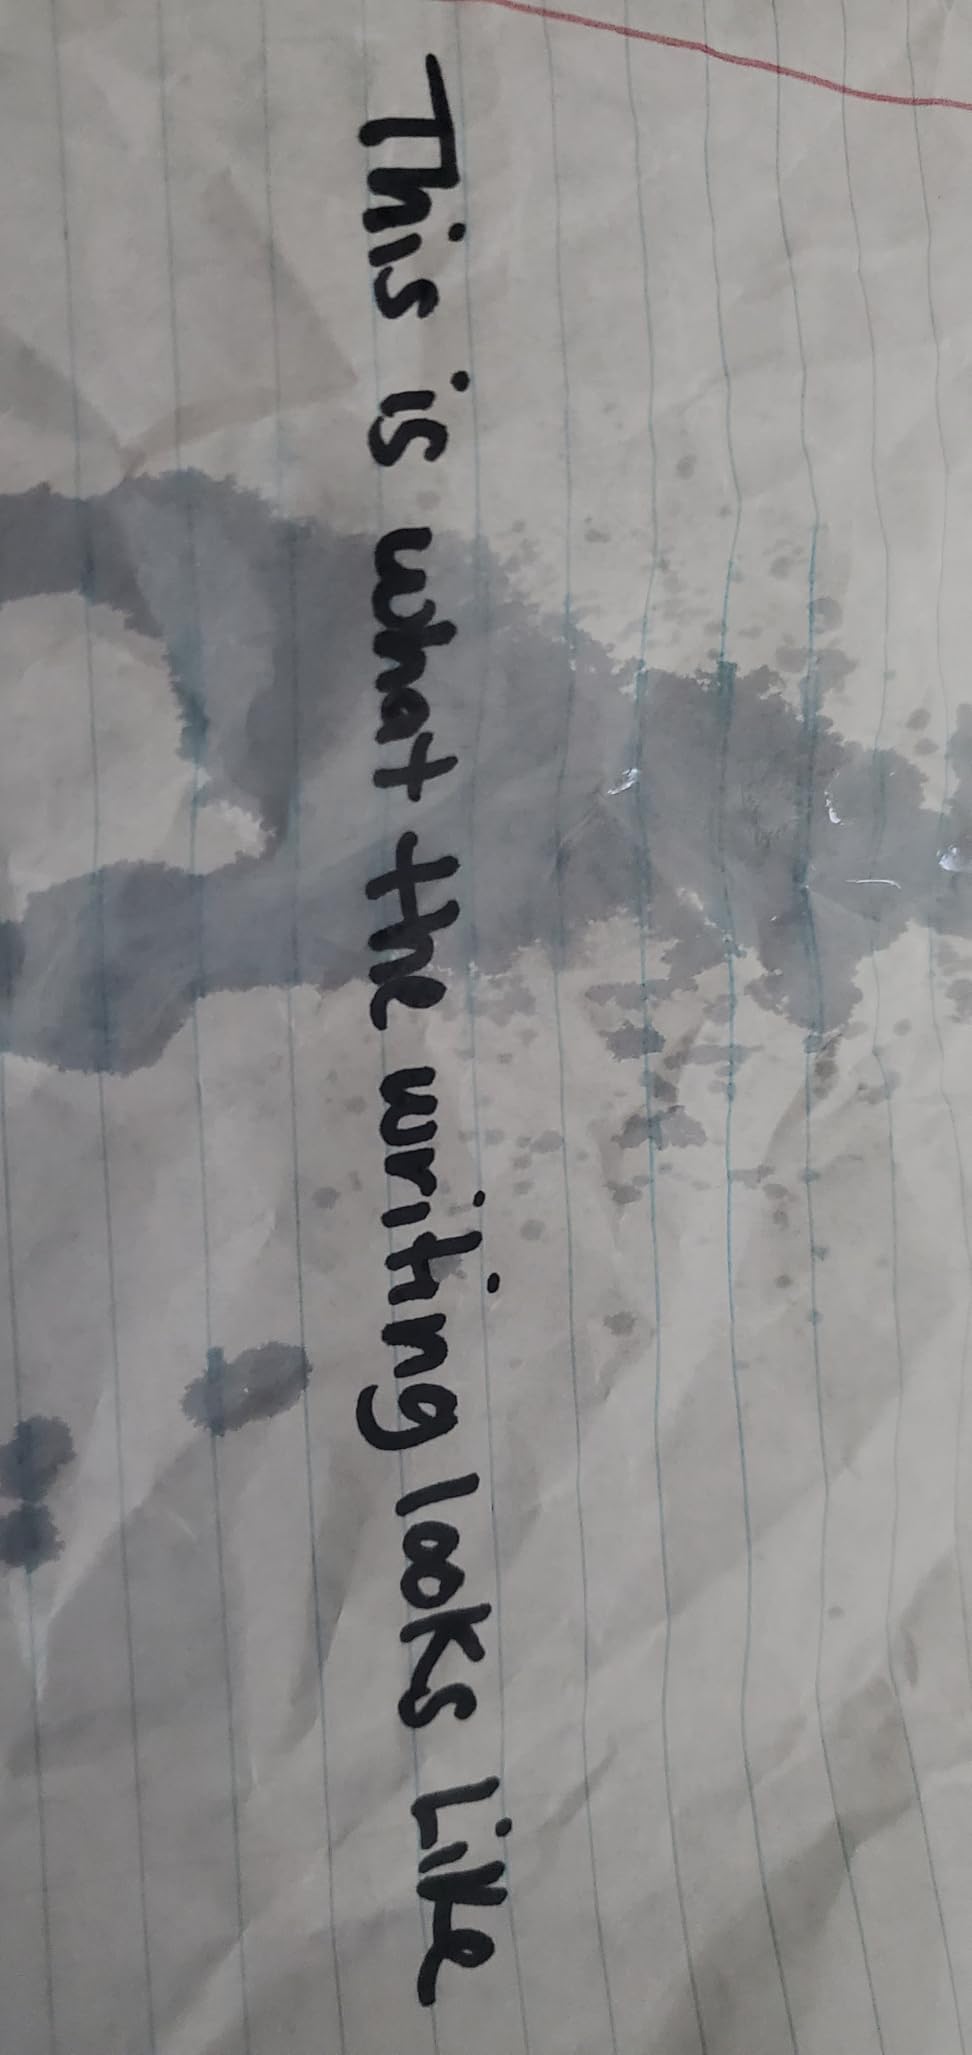 This is what the writing looks Like